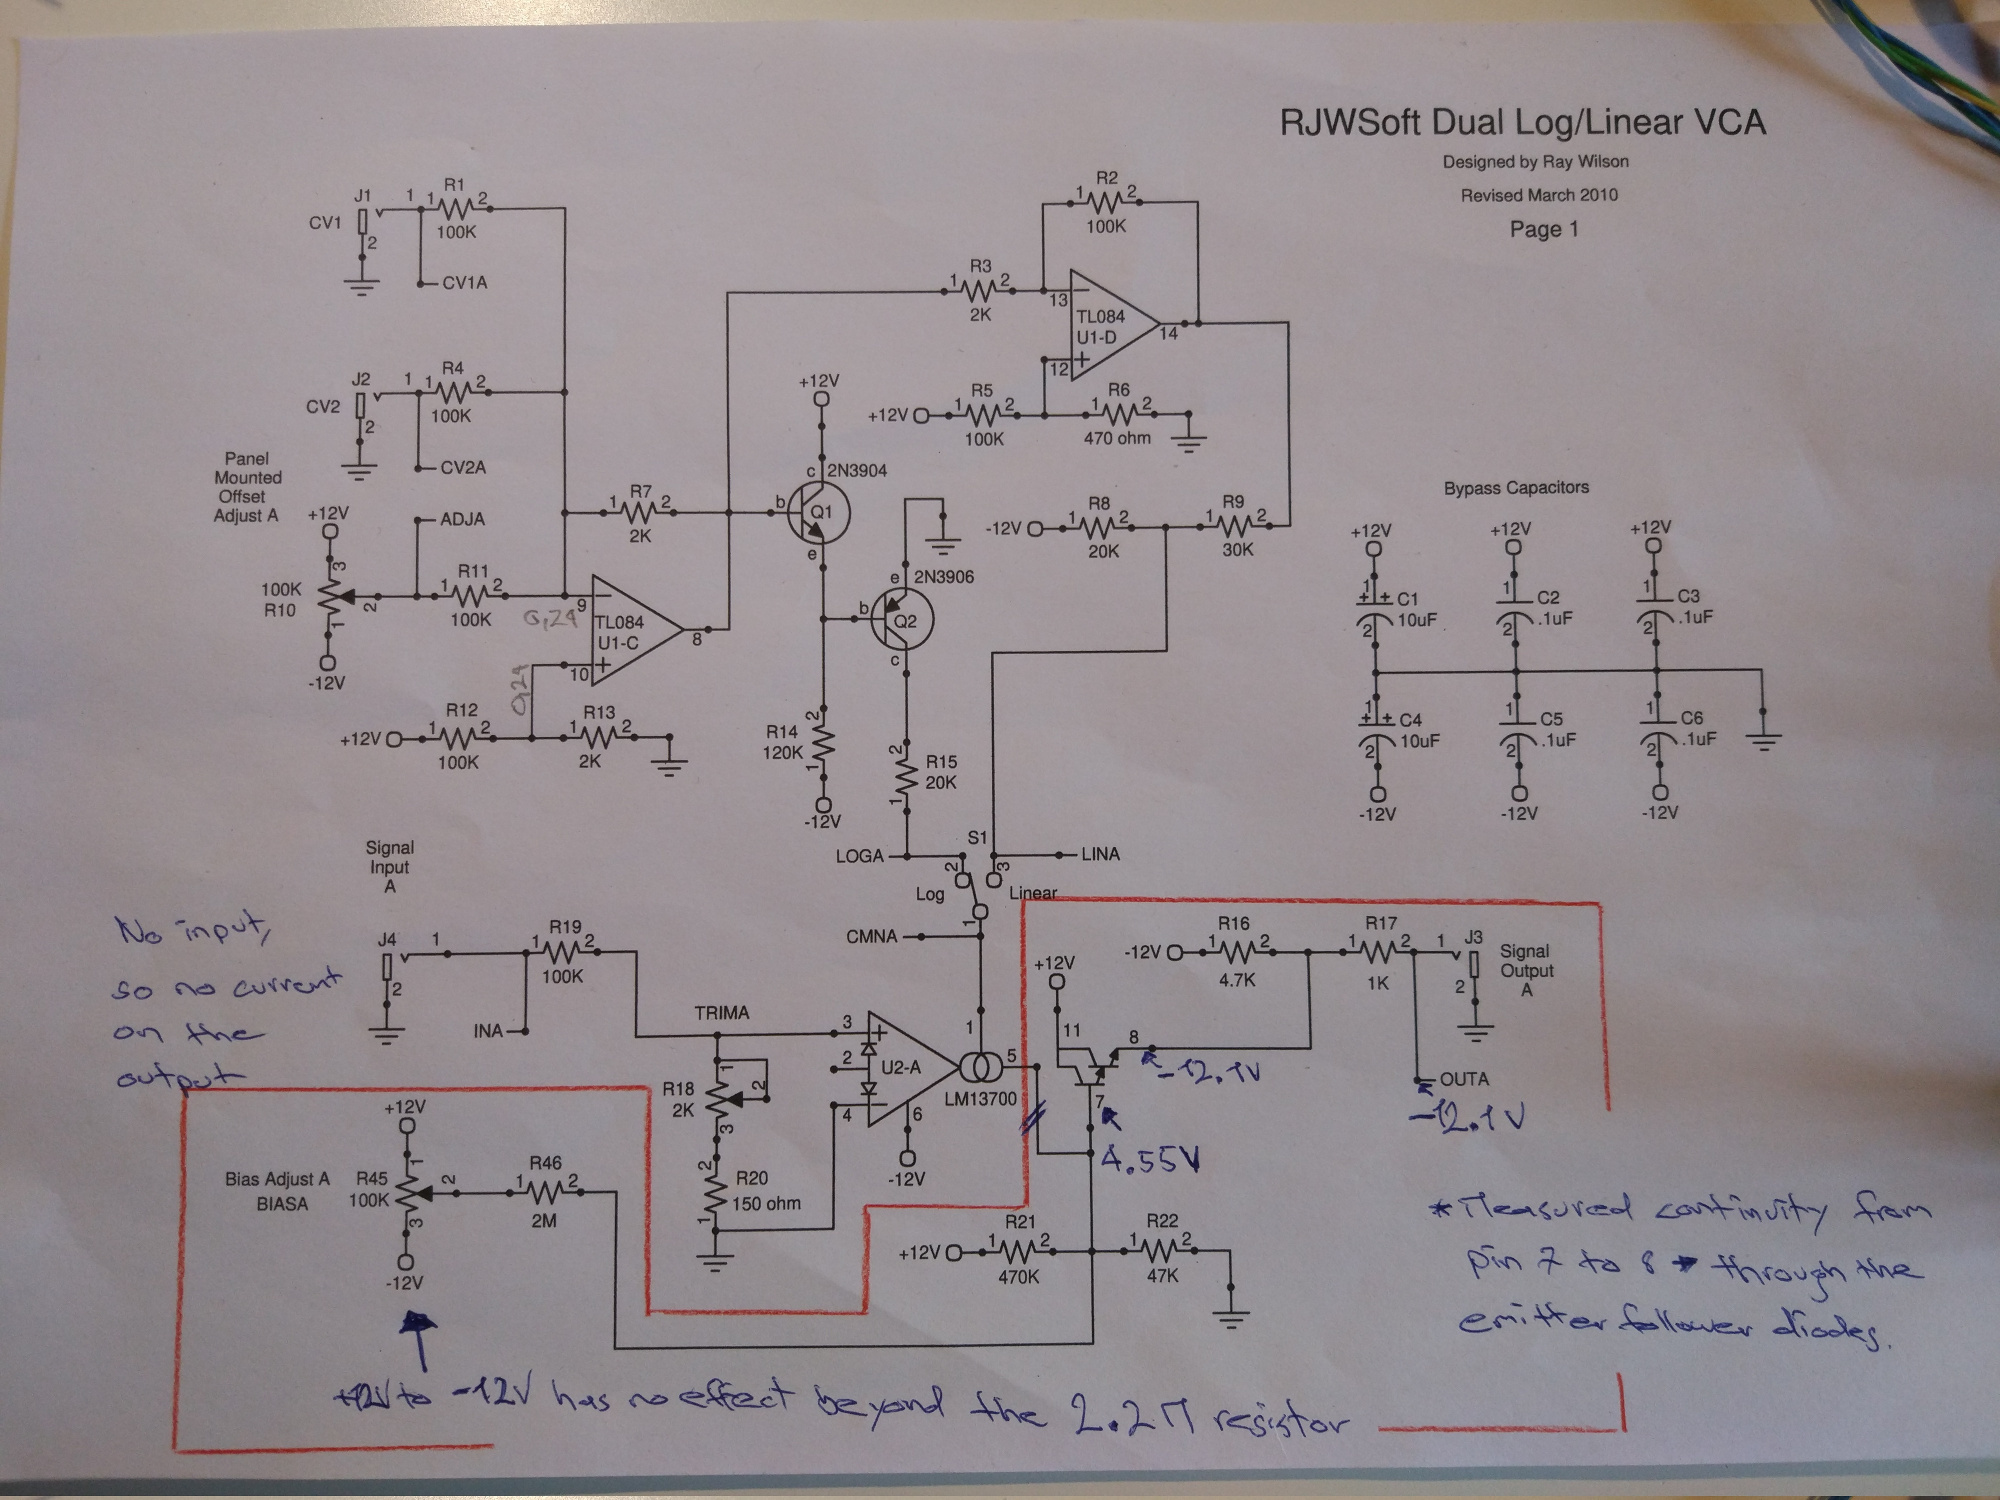 RJWSoft Dual Log/Linear VCA
Designed by Ray Wilson
Revised March 2010
Page 1
J1
CV1
1
2
1 R1 2
100K
CV1A
J2
CV2
1
2
1 R4 2
100K
CV2A
Panel
Mounted
Offset
Adjust A
+12V
100K
R10
3
2
1
-12V
ADJA
1 R11 2
100K
0,24
9
10
0,24
TL084
U1-C
8
+12V
1 R12 2
100K
1 R13 2
2K
1 R7 2
2K
+12V
c
2N3904
b
Q1
e
2N3906
e
b
Q2
c
2
R14
120K
1
-12V
2
R15
20K
1
1 R3 2
2K
1 R2 2
100K
13
12
TL084
U1-D
14
+12V
1 R5 2
100K
1 R6 2
470 ohm
-12V
1 R8 2
20K
1 R9 2
30K
Bypass Capacitors
+12V
+12V
+12V
1
C1
10uF
2
1
C2
.1uF
2
1
C3
.1uF
2
1
C4
10uF
2
1
C5
.1uF
2
1
C6
.1uF
2
-12V
-12V
-12V
LOGA
S1
2
3
LINA
Log
Linear
1
CMNA
Signal
Input
A
No input,
so no current
on the
output
J4
1
2
1 R19 2
100K
INA
TRIMA
1
R18
2K
2
3
2
R20
150 ohm
1
3
2
4
U2-A
6
-12V
1
5
LM13700
+12V
11
8
7
-12.1V
4.55V
-12V
1 R16 2
4.7K
1 R17 2
1K
1
J3
2
Signal
Output
A
OUTA
-12.1V
Bias Adjust A
BIASA
+12V
1
R45
100K
2
3
-12V
1 R46 2
2M
+12V
1 R21 2
470K
1 R22 2
47K
* Measured continuity from
pin 7 to 8 → through the
emitter follower diodes.
+12V to -12V has no effect beyond the 2.2M resistor